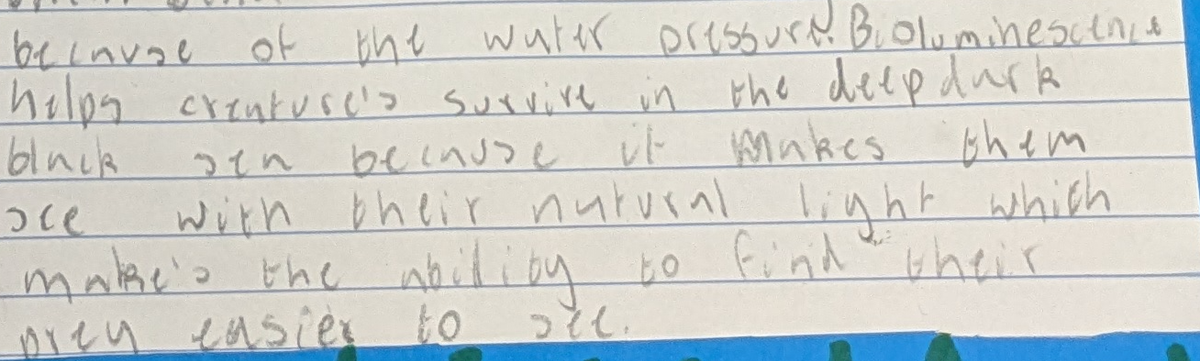 because of the water pressure. Bioluminescence
helps creature's survive in the deep dark
black sea because it makes them
see with their natural light which
make's the ability to find their
prey easier to see.